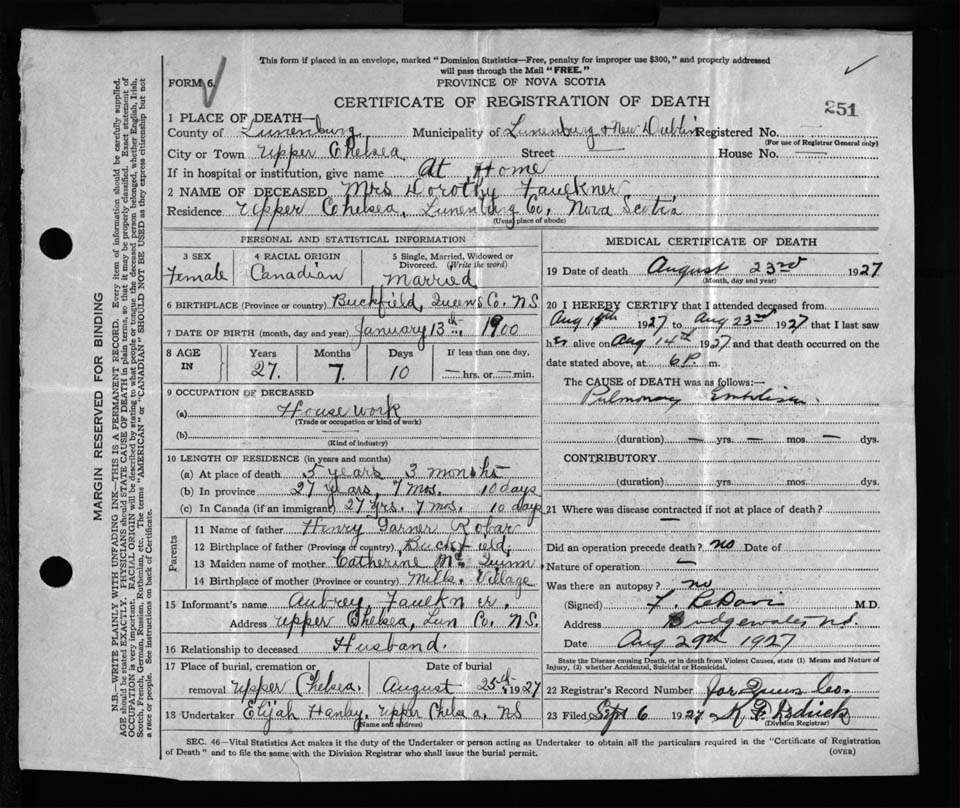 This form if placed in an envelope, marked "Dominion Statistics—Free, penalty for improper use $300," and properly addressed
will pass through the Mail "FREE."
FORM 6.
PROVINCE OF NOVA SCOTIA
CERTIFICATE OF REGISTRATION OF DEATH
251
1 PLACE OF DEATH—
County of Lunenburg Municipality of Lunenburg & New Dublin Registered No.
(For use of Registrar General only)
City or Town Upper Chelsea Street — House No. —
If in hospital or institution, give name At Home
2 NAME OF DECEASED Mrs Dorothy Faulkner
Residence Upper Chelsea, Lunenburg Co, Nova Scotia
(Usual place of abode)
PERSONAL AND STATISTICAL INFORMATION
3 SEX
Female
4 RACIAL ORIGIN
Canadian
5 Single, Married, Widowed or
Divorced. (Write the word)
Married
6 BIRTHPLACE (Province or country) Buckfield, Queens Co. N.S
7 DATE OF BIRTH (month, day and year) January 13th, 1900
8 AGE IN
Years 27.
Months 7.
Days 10
If less than one day,
— hrs. or — min.
9 OCCUPATION OF DECEASED
(a) House work
(Trade or occupation or kind of work)
(b)
(Kind of industry)
10 LENGTH OF RESIDENCE (in years and months)
(a) At place of death 5 years 3 months
(b) In province 27 years, 7 mos. 10 days
(c) In Canada (if an immigrant) 27 yrs. 7 mos. 10 days
Parents
11 Name of father Henry Garner Robar
12 Birthplace of father (Province or country) Buckfield,
13 Maiden name of mother Catherine Mc Quinn
14 Birthplace of mother (Province or country) Mills. Village
15 Informant's name Aubrey Faulkner,
Address Upper Chelsea, Lun Co. N.S.
16 Relationship to deceased Husband.
17 Place of burial, cremation or Date of burial
removal Upper Chelsea. August 25th 1927
18 Undertaker Elijah Hanley, Upper Chelsea, NS
(Name and address)
MEDICAL CERTIFICATE OF DEATH
19 Date of death August 23rd 1927
(Month, day and year)
20 I HEREBY CERTIFY that I attended deceased from
Aug 1927 to Aug 23rd 1927 that I last saw
her alive on Aug 14th 1927 and that death occurred on the
date stated above, at 6 P. m.
The CAUSE OF DEATH was as follows:—
Pulmonary Embolism.
(duration) — yrs. — mos. — dys.
CONTRIBUTORY
(duration) yrs. mos. dys.
21 Where was disease contracted if not at place of death?
—
Did an operation precede death? no Date of
Nature of operation —
Was there an autopsy? no
(Signed) M.D.
Address Bridgewater N.S.
Date Aug 29th 1927
State the Disease causing Death, or in death from Violent Causes, state (1) Means and Nature of
Injury, (2) whether Accidental, Suicidal or Homicidal.
22 Registrar's Record Number
23 Filed, Sept 6 1927
(Division Registrar)
SEC. 46—Vital Statistics Act makes it the duty of the Undertaker or person acting as Undertaker to obtain all the particulars required in the "Certificate of Registration
of Death" and to file the same with the Division Registrar who shall issue the burial permit.
(OVER)
MARGIN RESERVED FOR BINDING
N.B.—WRITE PLAINLY WITH UNFADING INK—THIS IS A PERMANENT RECORD. Every item of information should be carefully supplied.
AGE should be stated EXACTLY. PHYSICIANS should STATE CAUSE OF DEATH in plain terms, so that it may be properly classified. Exact statement of
OCCUPATION is very important. RACIAL ORIGIN will be described by stating to what people or tongue the deceased person belonged, whether English, Irish,
Scotch, French, German, Russian, Ruthenian, etc. The terms "AMERICAN" or "CANADIAN" SHOULD NOT BE USED as they express citizenship but not
a race or people. See instructions on back of Certificate.